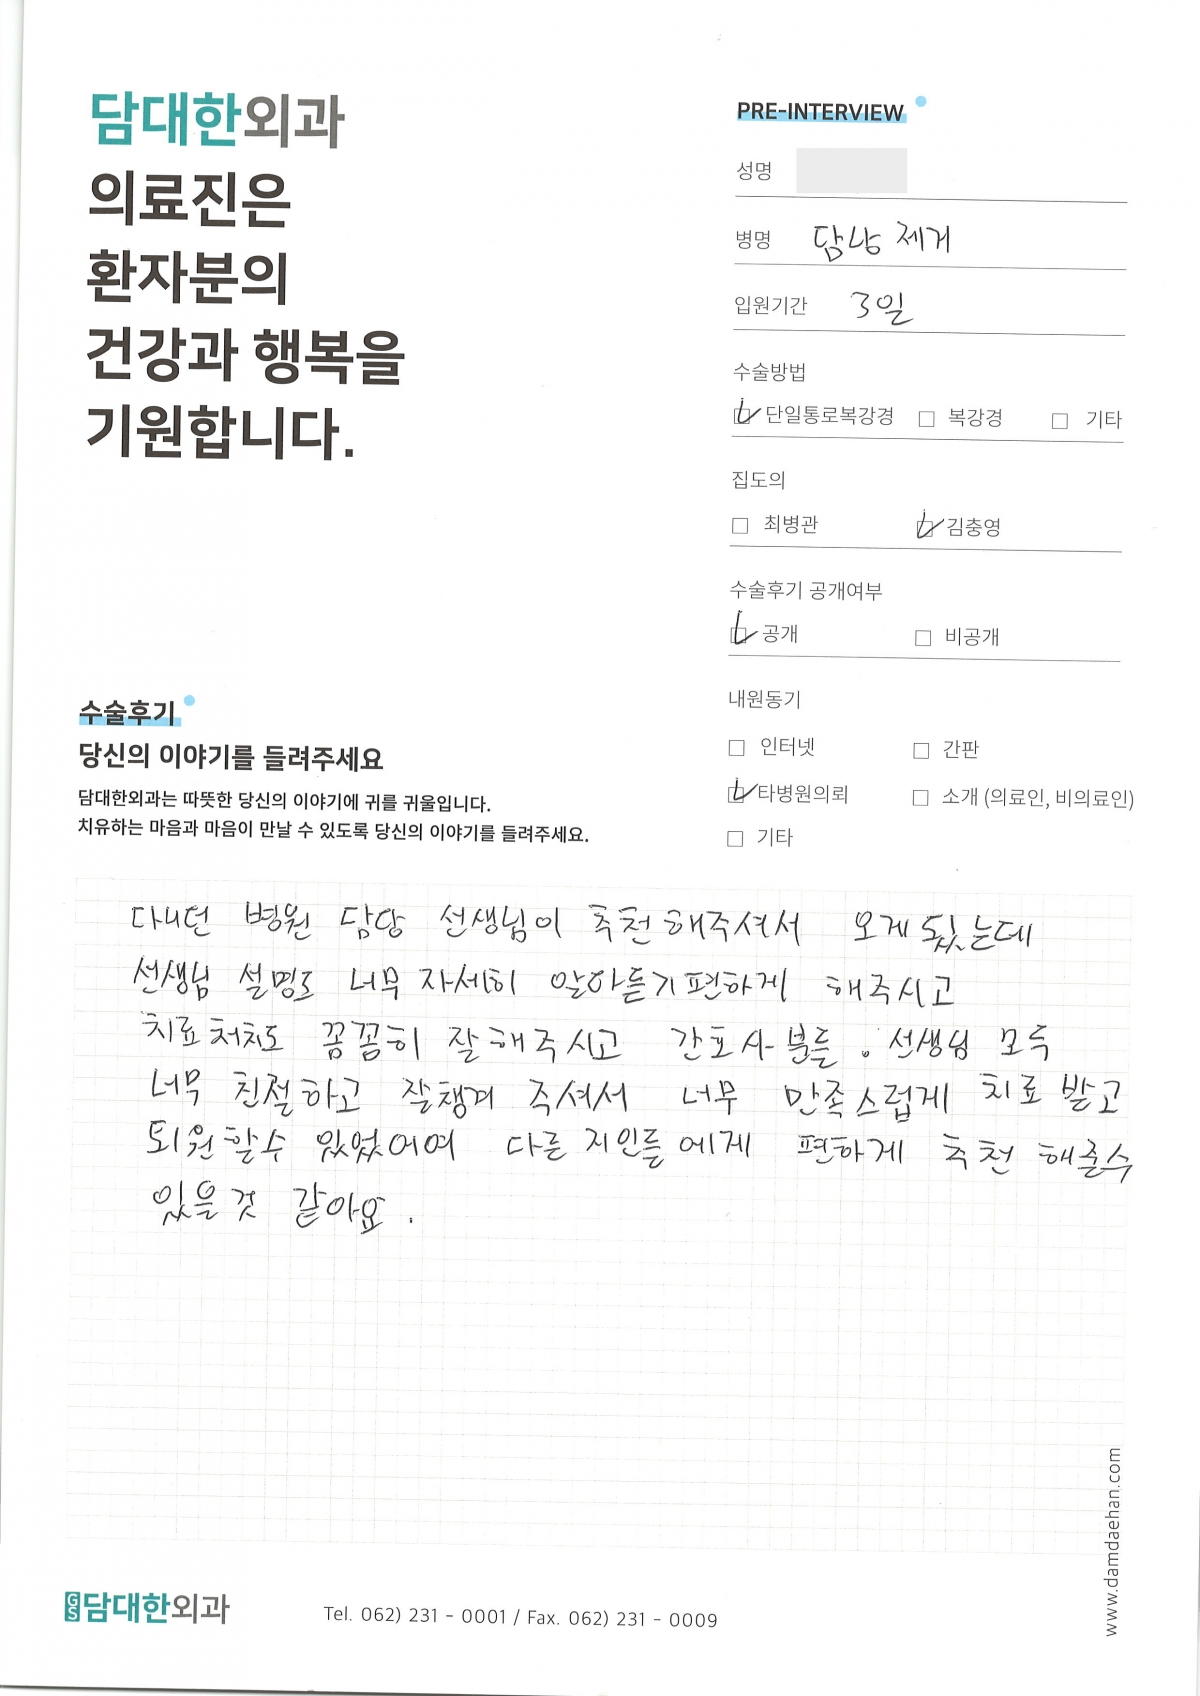 담대한외과
의료진은
환자분의
건강과 행복을
기원합니다.
PRE-INTERVIEW
성명
병명 담낭 제거
입원기간 3일
수술방법
단일통로복강경 □ 복강경 □ 기타
집도의
□ 최병관 김충영
수술후기 공개여부
공개 □ 비공개
내원동기
□ 인터넷 □ 간판
타병원의뢰 □ 소개 (의료인, 비의료인)
□ 기타
수술후기
당신의 이야기를 들려주세요
담대한외과는 따뜻한 당신의 이야기에 귀를 귀울입니다.
치유하는 마음과 마음이 만날 수 있도록 당신의 이야기를 들려주세요.
다니던 병원 담당 선생님이 추천해주셔서 오게됬는데
선생님 설명도 너무 자세히 알아듣기편하게 해주시고
치료처치도 꼼꼼히 잘해주시고 간호사분들. 선생님 모두
너무 친절하고 잘챙겨 주셔서 너무 만족스럽게 치료 받고
퇴원할수 있었어여 다른 지인들에게 편하게 추천 해줄수
있을것 같아요.
GS담대한외과
Tel. 062) 231 - 0001 / Fax. 062) 231 - 0009
www.damdaehan.com